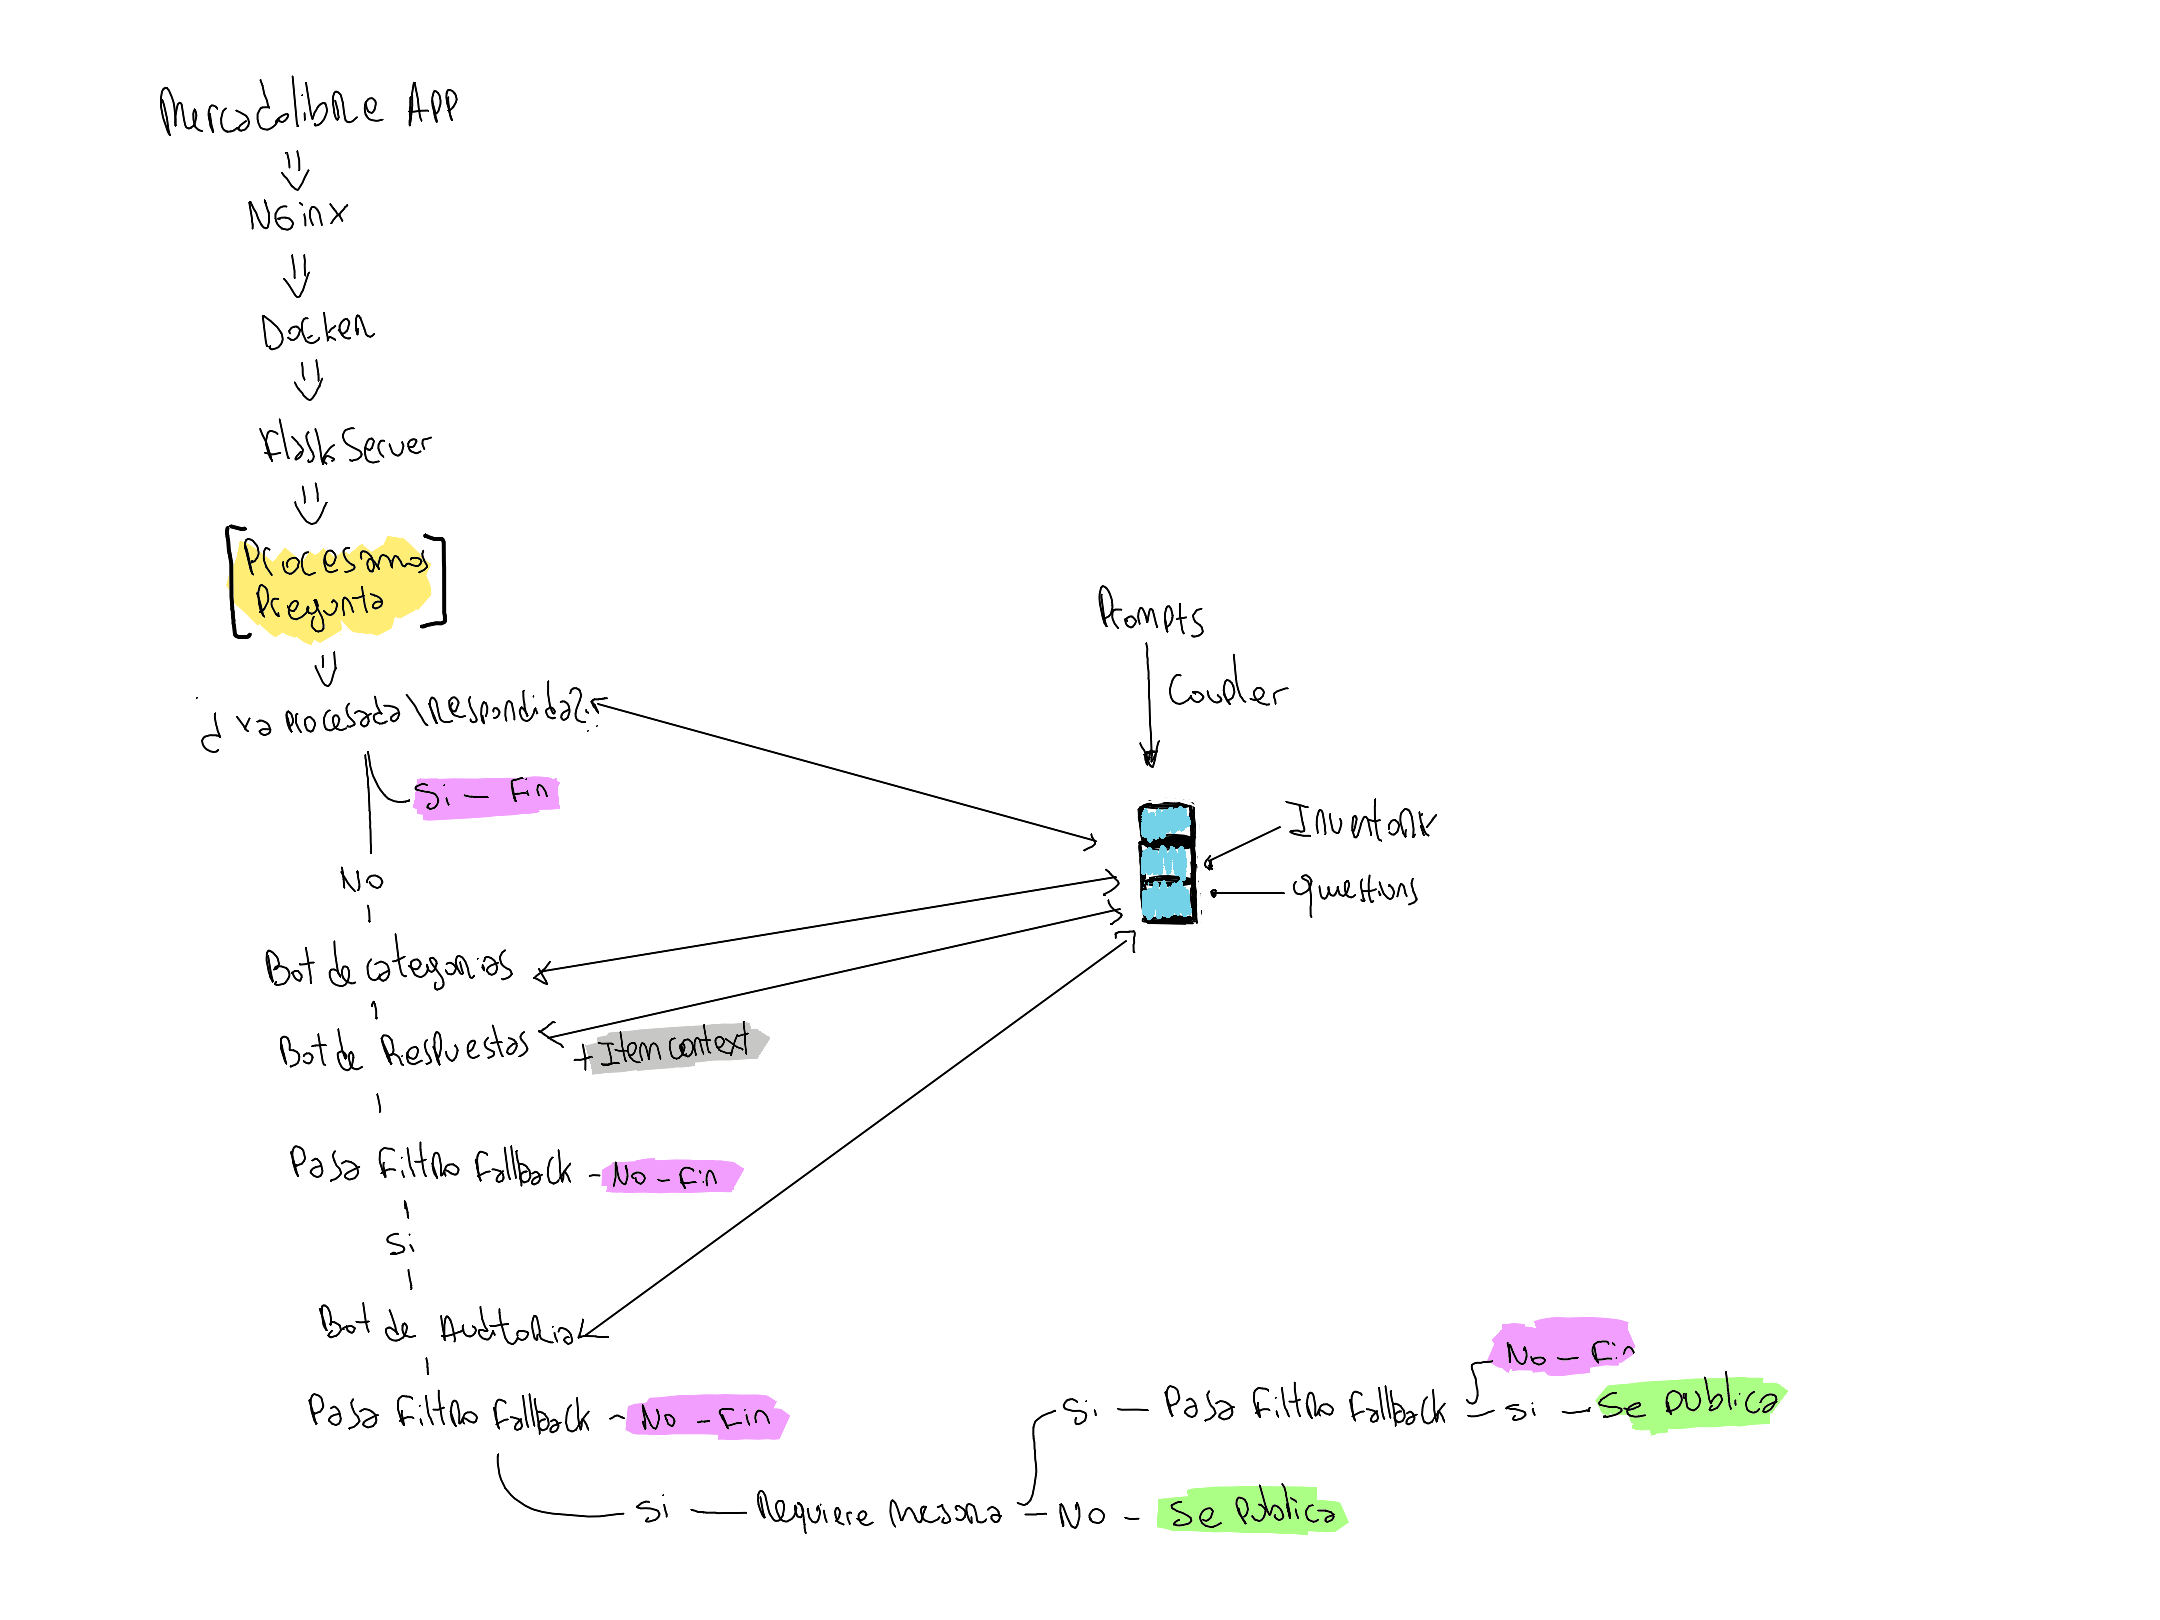 Mercadolibre App
Nginx
Docker
Flask Server
Procesamos
Pregunta
¿Ya Procesada\Respondida?
Si - Fin
No
Bot de categorias
Bot de Respuestas
+ Item context
Pasa Filtro Fallback - No - Fin
Si
Bot de Auditoria
Pasa Filtro Fallback - No - Fin
Si - Requiere Mejora - No - Se publica
Si - Pasa Filtro Fallback - Si - Se publica
No - Fin
Prompts
Coupler
Inventory
Questions